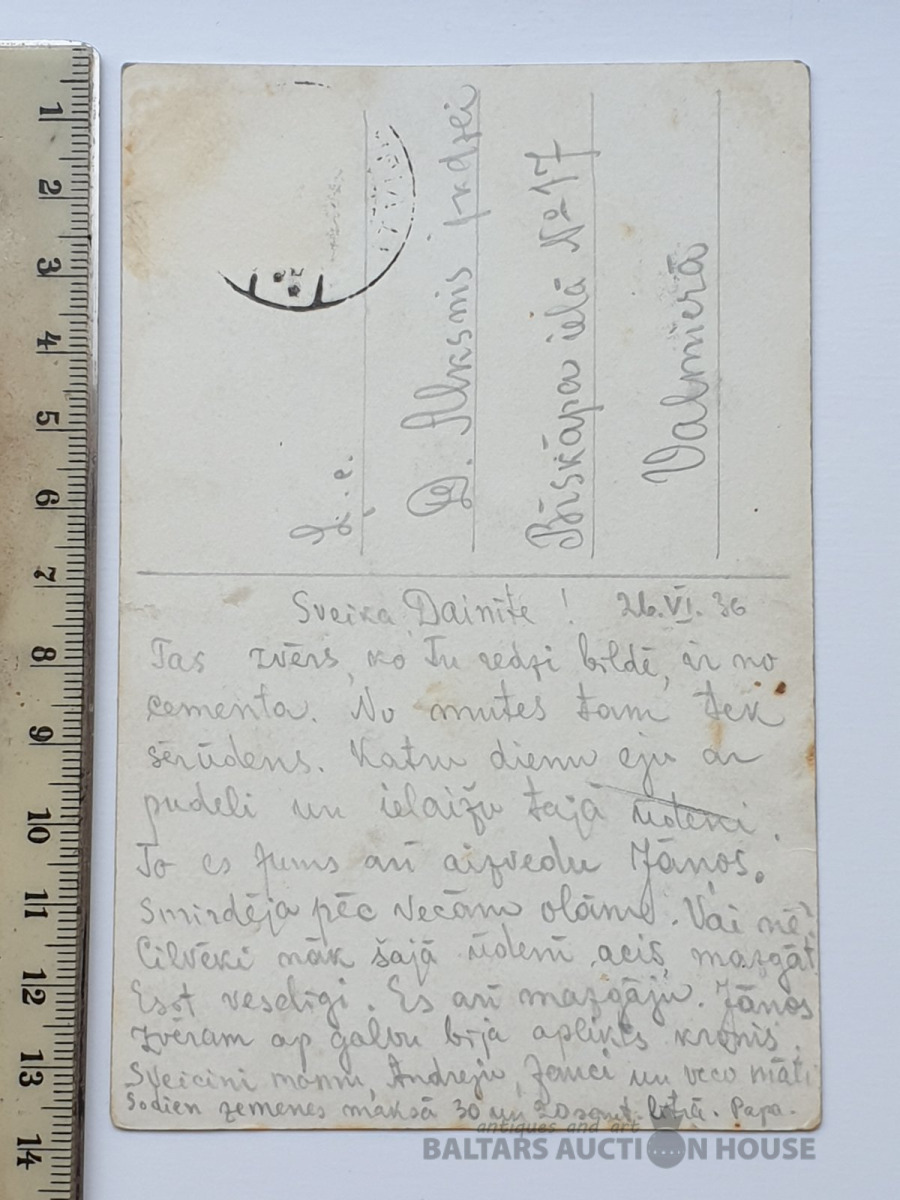 Ļ. c.
D. Alksnis jrdzei
Bīskāpa ielā № 17
Valmierā
Sveika Dainīte! 26.VI.36
Tas zvērs, ko Tu redzi bildē, ir no
cementa. No mutes tam tek
sērūdens. Katru dienu eju ar
pudeli un ielaižu tajā ūdeni.
To es Jums arī aizvedu Jāņos.
Smirdēja pēc vecām olām. Vai nē?
Cilvēki nāk šajā ūdenī acis mazgāt
Esot veselīgi. Es arī mazgāju. Jāņos
zvēram ap galvu bija aplikts kronis.
Sveicini mammu, Andreju, Janci un veco māti
Šodien zemenes maksā 30 un 20 sant. litrā. Papa.
1
2
3
4
5
6
7
8
9
10
11
12
13
14
antiques and art
BALTARS AUCTION HOUSE